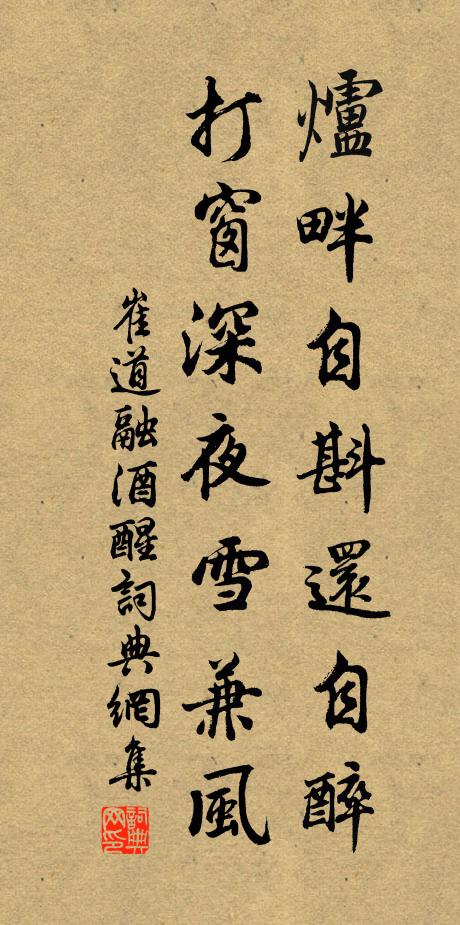 爐畔自斟還自醉
打窗深夜雪兼風
崔道融酒醒詞典網集
詞典網印